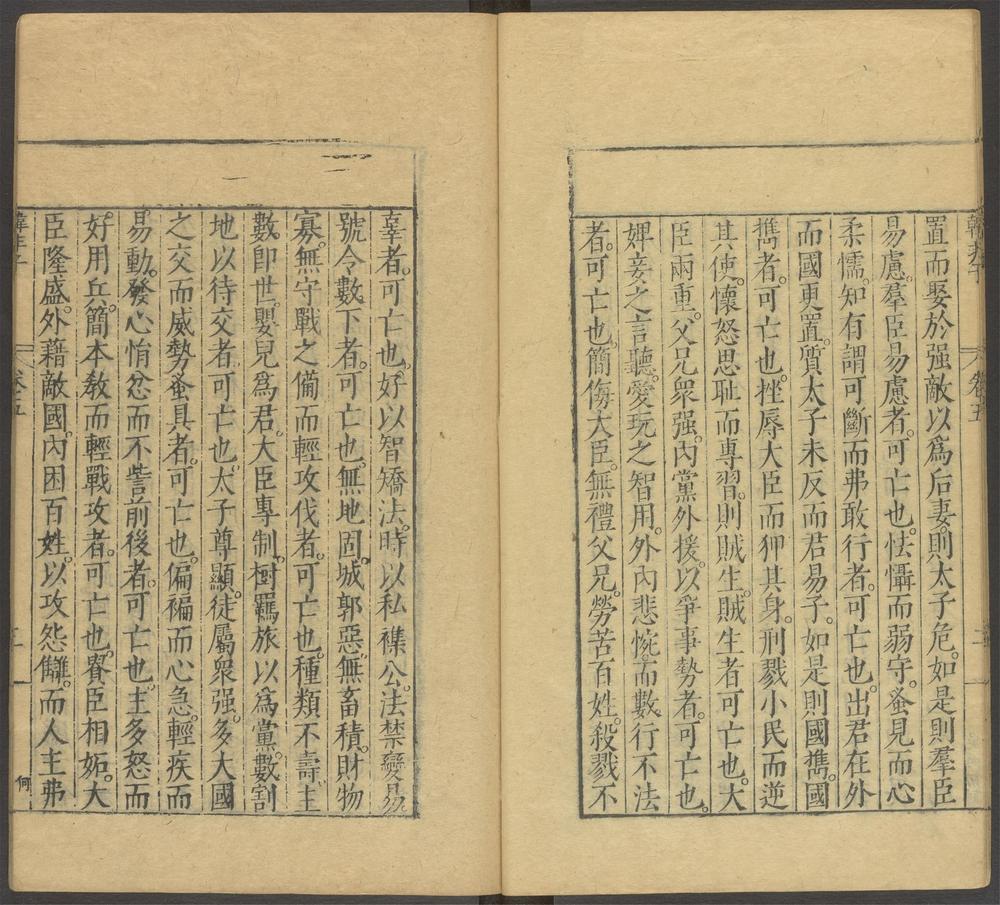 韓非子 卷五 二
置而娶於强敵以爲后妻。則太子危。如是則羣臣
易慮。羣臣易慮者。可亡也。怯懾而弱守。蚤見而心
柔懦。知有謂可斷而弗敢行者。可亡也。出君在外
而國更置。質太子未反而君易子。如是則國攜。國
攜者。可亡也。挫辱大臣而狎其身。刑戮小民而逆
其使。懷怒思耻而專習。則賊生。賊生者可亡也。大
臣兩重。父兄衆强。內黨外援。以爭事勢者。可亡也。
婢妾之言聽。愛玩之智用。外內悲惋而數行不法
者。可亡也。簡傷大臣。無禮父兄。勞苦百姓。殺戮不
辜者。可亡也。好以智矯法。時以私襍公。法禁變易。
號令數下者。可亡也。無地固。城郭惡。無畜積。財物
寡。無守戰之備而輕攻伐者。可亡也。種類不壽。主
數卽世。嬰兒爲君。大臣專制。樹羈旅以爲黨。數割
地以待交者。可亡也。太子尊顯。徒屬衆强。多大國
之交而威勢蚤具者。可亡也。偏褊而心急。輕疾而
易動。發心悁忿而不訾前後者。可亡也。主多怒而
好用兵。簡本敎而輕戰攻者。可亡也。賽臣相妬。大
臣隆盛。外藉敵國。內困百姓。以攻怨讎。而人主弗
韓非子 卷五 三 何